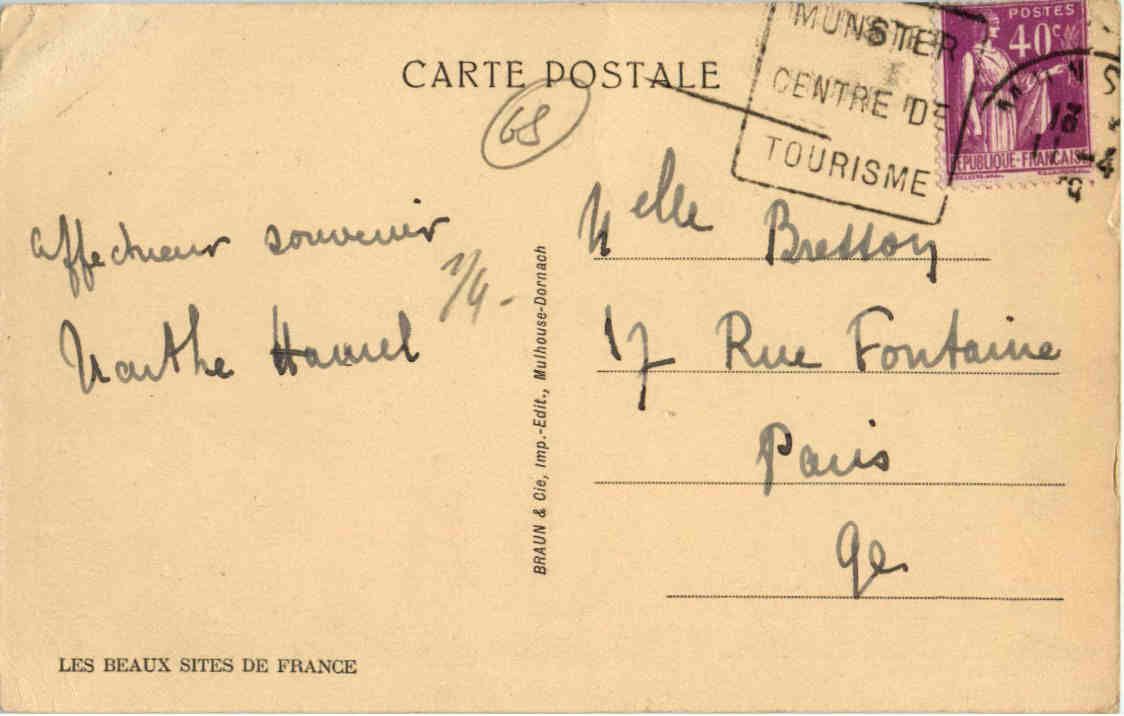 CARTE POSTALE
MUNSTER
CENTRE DE
TOURISME
POSTES
40c
REPUBLIQUE-FRANCAISE
68
affectueux souvenir
1/4-
Marthe Hamel
BRAUN & Cie, Imp.-Edit., Mulhouse-Dornach
Melle Bresson
17 Rue Fontaine
Paris
9e
LES BEAUX SITES DE FRANCE